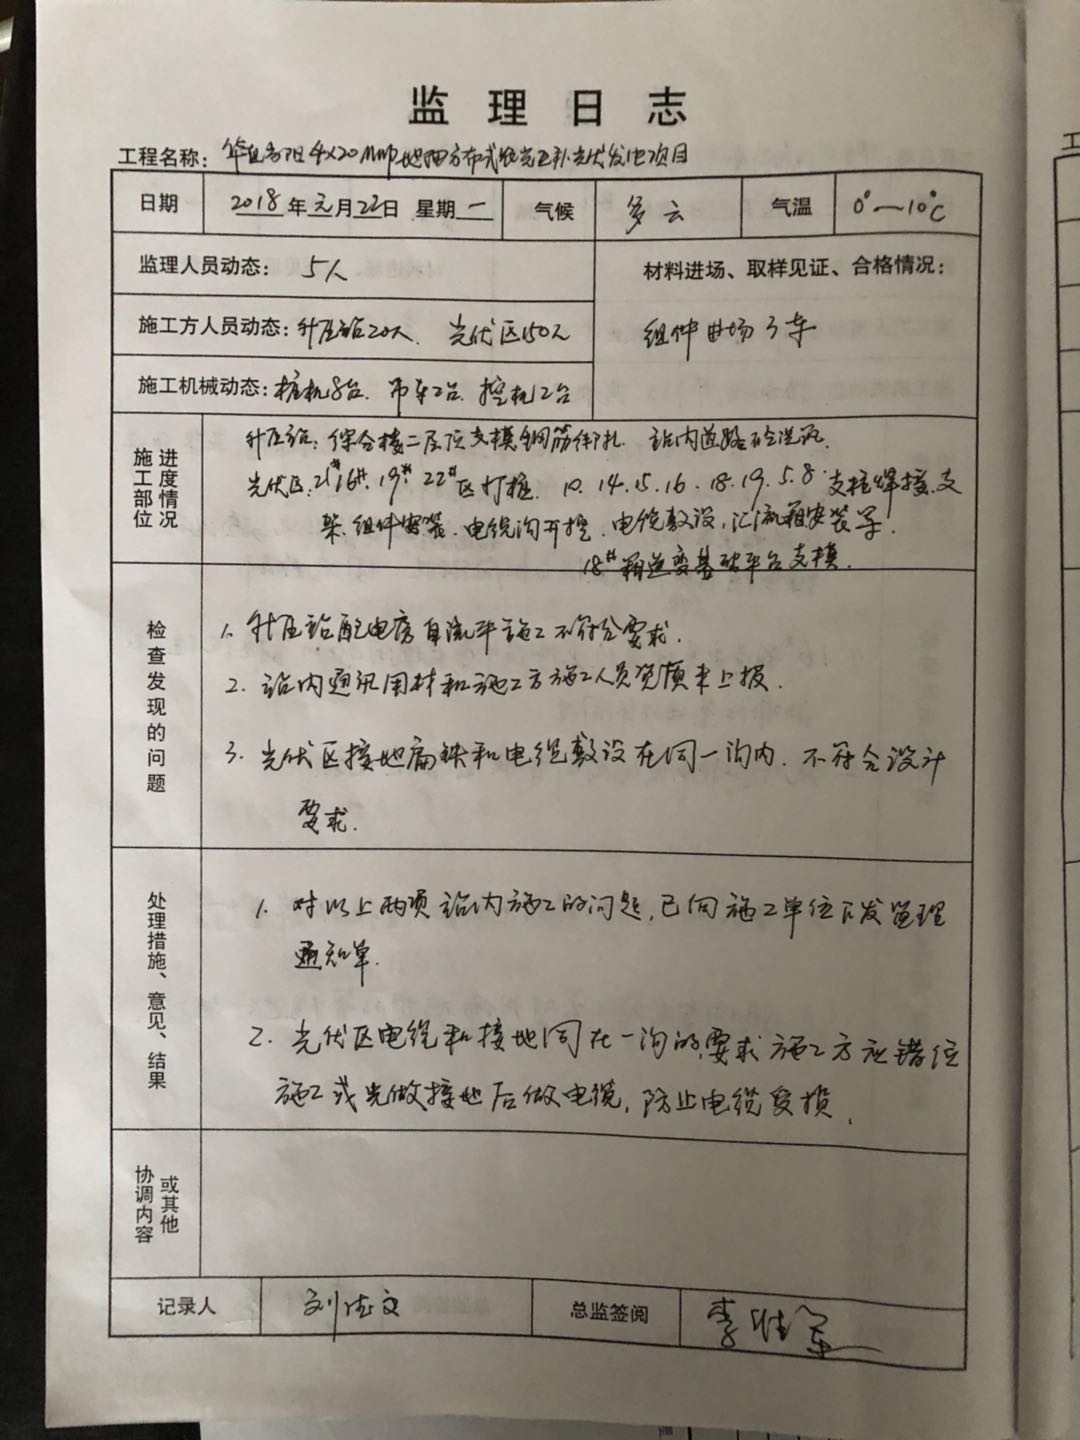 监理日志
工程名称: 4×20MWP地面分布式农光互补光伏发电项目
日期 2018年元月22日 星期一 气候 多云 气温 0°—10℃
监理人员动态: 5人
材料进场、取样见证、合格情况:
施工方人员动态: 升压站20人. 光伏区150人
组件进场3车
施工机械动态: 桩机8台. 吊车2台. 挖机2台
施工部位进度情况
升压站: 综合楼二层顶支模钢筋绑扎. 站内道路砼浇筑.
光伏区: 21#16#. 19#. 22#区打桩. 10.14.15.16.18.19.5.8.支柱焊接.支
架.组件安装.电缆沟开挖.电缆敷设,汇流箱安装等.
18#箱逆变基础平台支模.
检查发现的问题
1. 升压站配电房自流平施工不符合要求.
2. 站内通讯用材和施工方施工人员资质未上报.
3. 光伏区接地扁铁和电缆敷设在同一沟内. 不符合设计
要求.
处理措施、意见、结果
1. 对以上两项站内施工的问题,已向施工单位下发监理
通知单.
2. 光伏区电缆和接地同在一沟的,要求施工方应错位
施工或先做接地后做电缆,防止电缆受损.
协调内容或其他
记录人 总监签阅